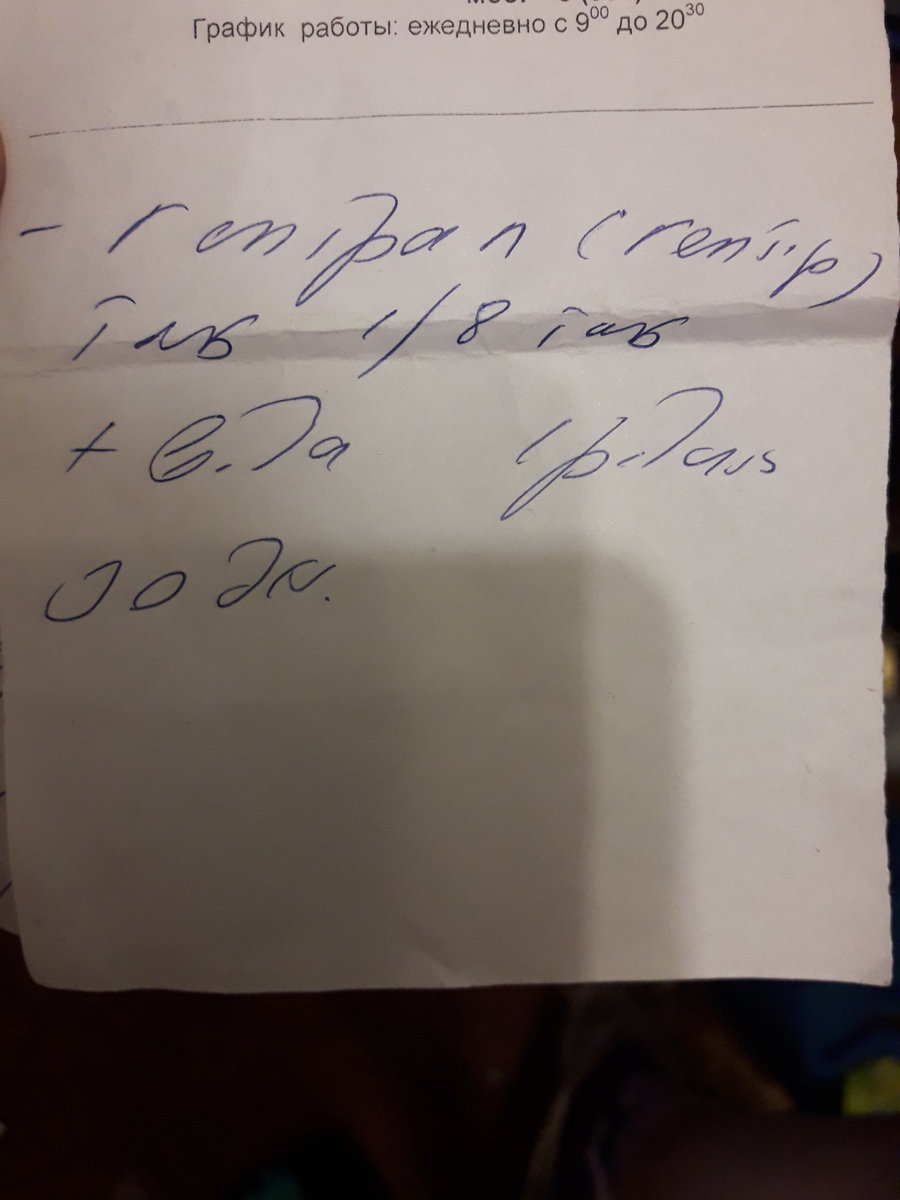 График работы: ежедневно с 9⁰⁰ до 20³⁰
- Гептрал (гептр)
таб 1/8 таб
+ вода 1р. день
30 дн.